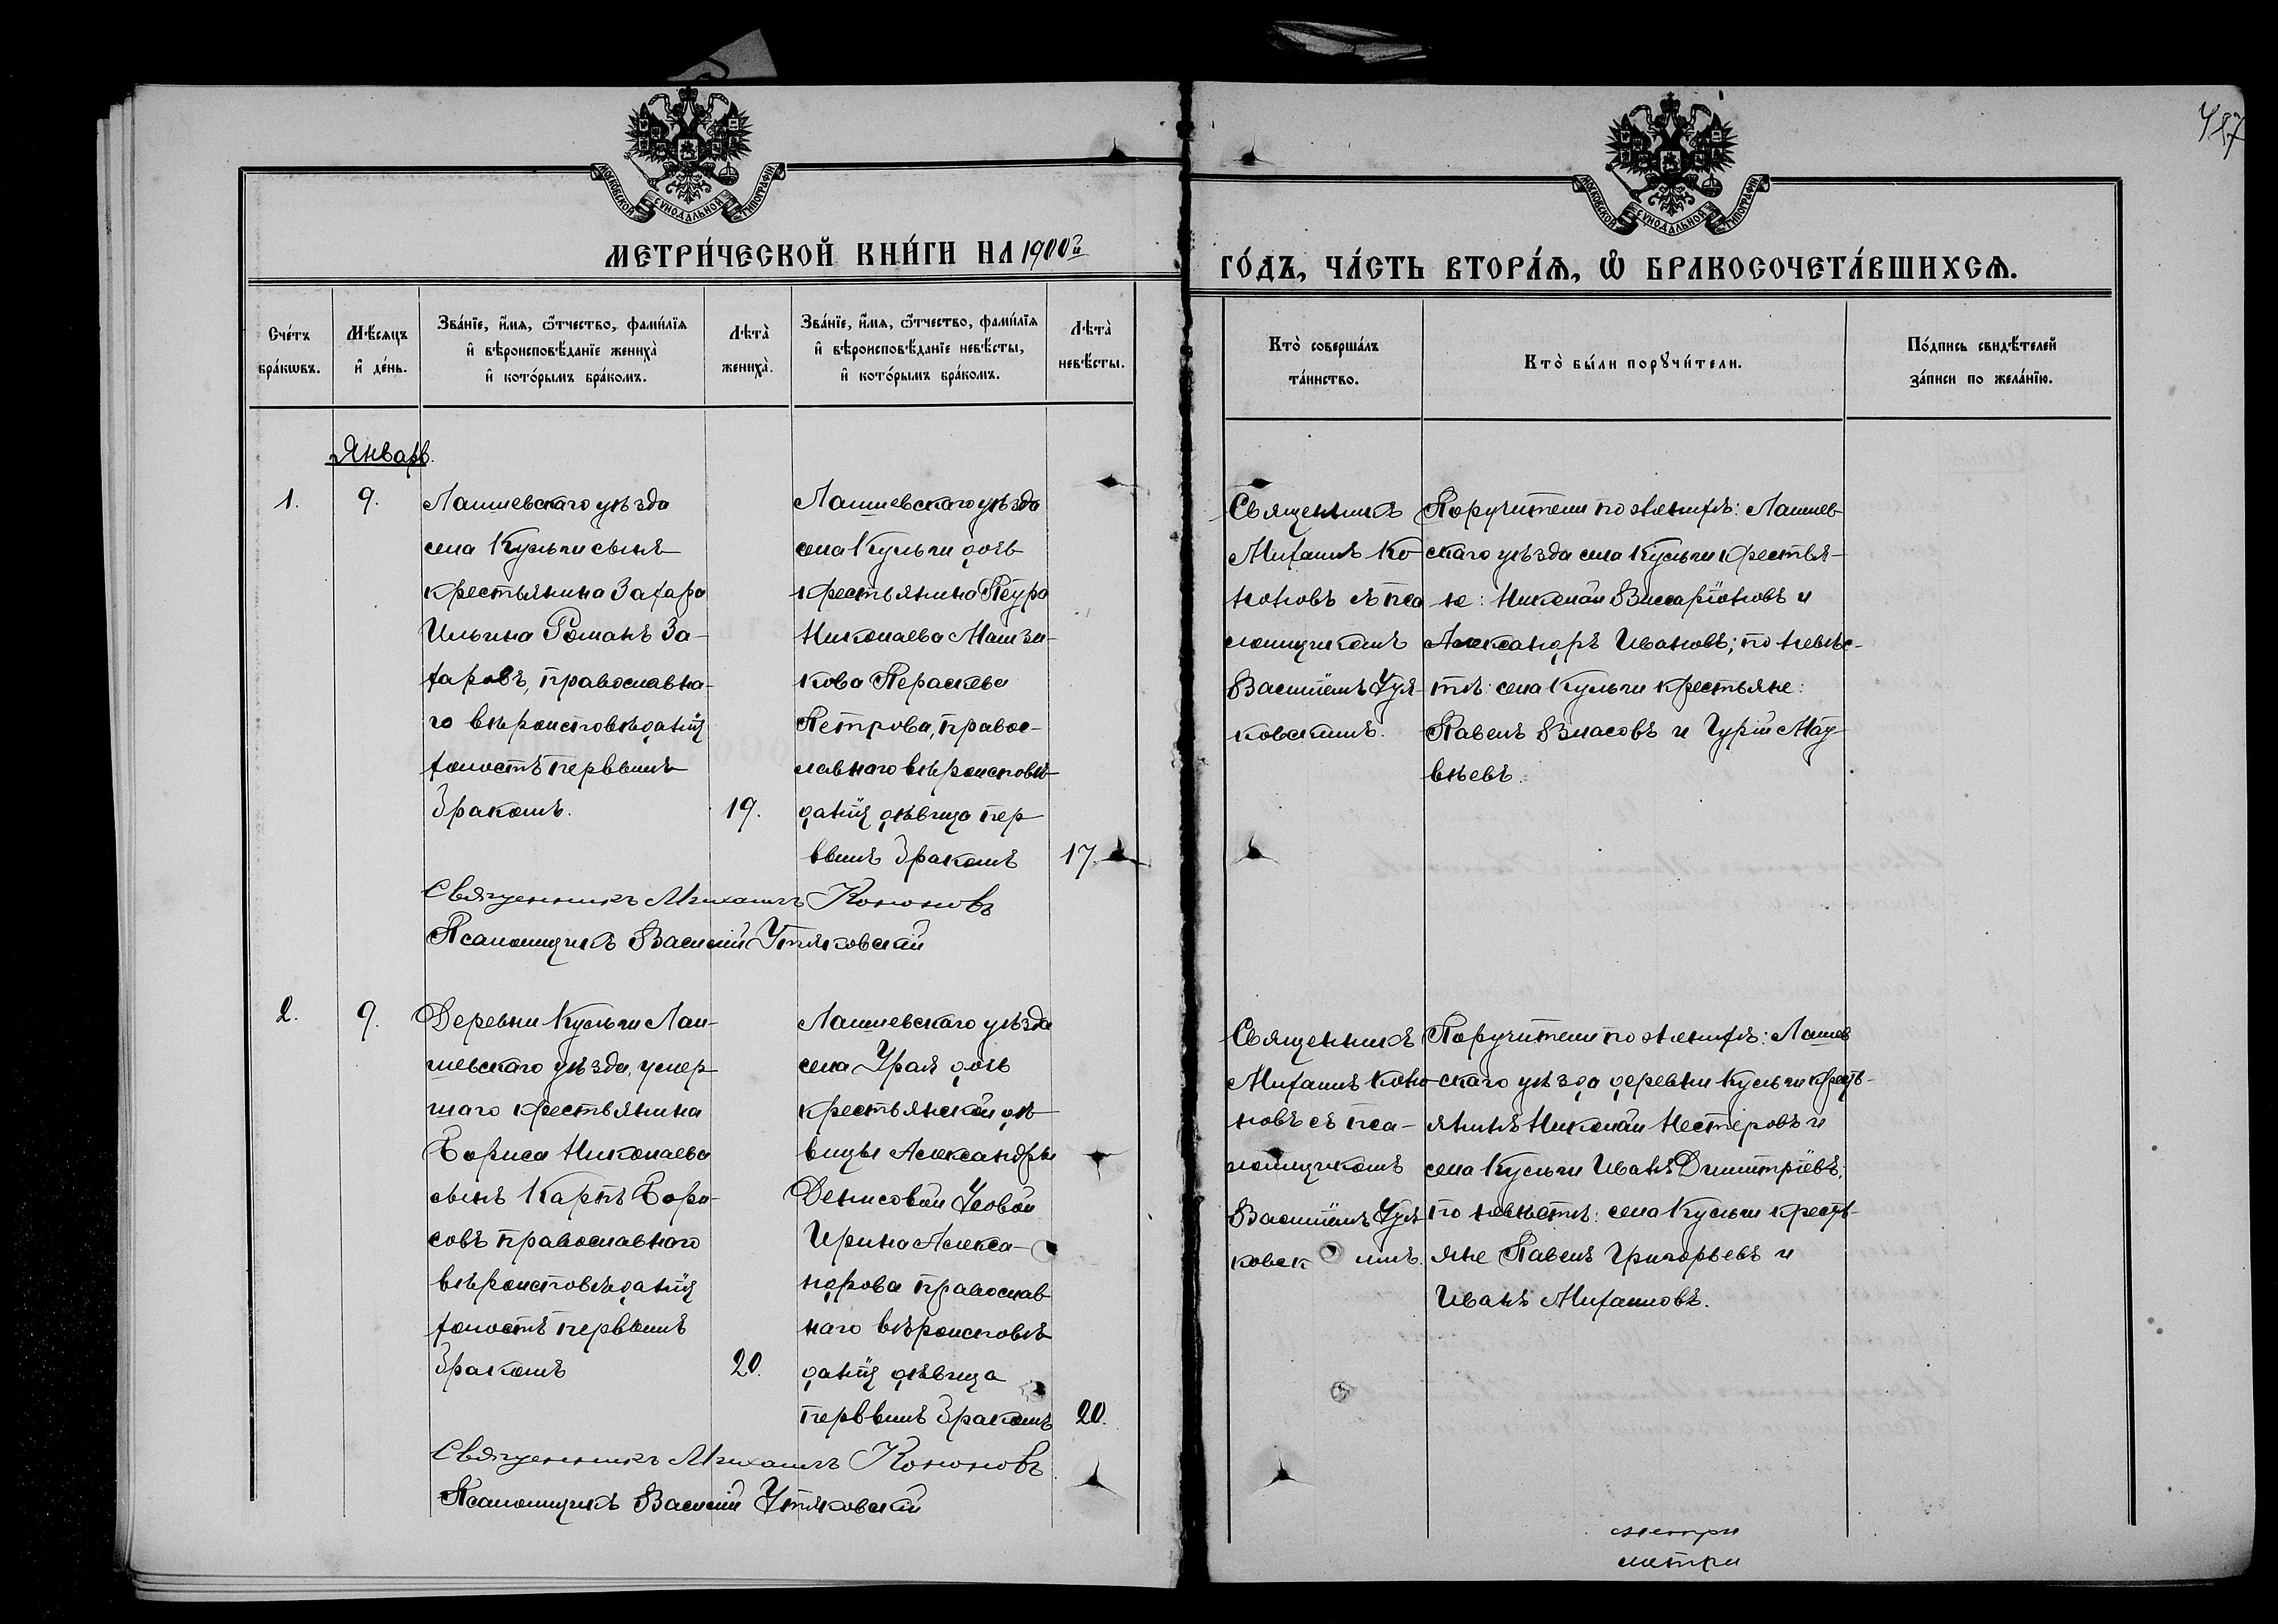 487
МОСКОВСКОЙ СѴНОДАЛЬНОЙ ТИПОГРАФІИ.
МОСКОВСКОЙ СѴНОДАЛЬНОЙ ТИПОГРАФІИ.
МЕТРИ́ЧЕСКОЙ КНИ́ГИ НА 1900й
ГО́ДЪ, ЧА́СТЬ ВТОРА́Ѧ, Ѽ БРАКОСОЧЕТА́ВШИХСѦ.
Сче́тъ бра́кѡвъ.
Мѣ́сѧцъ и҆ де́нь.
Зва́нїе, и҆́мѧ, ѻ҆́тчество, фами́лїѧ
и҆ вѣроисповѣ́данїе жениха̀
и҆ кото́рымъ бра́комъ.
Лѣ́та̀ жениха̀.
Зва́нїе, и҆́мѧ, ѻ҆́тчество, фами́лїѧ
и҆ вѣроисповѣ́данїе невѣ́сты,
и҆ кото́рымъ бра́комъ.
Лѣ́та̀ невѣ́сты.
Кто̀ соверша́лъ
та́инство.
Кто̀ бы́ли порꙋчи́тели.
По́дпись свидѣ́телей
за́писи по жела́нїю.
Январь.
1.
9.
Лаишевскаго уѣзда
села Кульги сынъ
крестьянина Захара
Ильина Романъ За-
харовъ, православна-
го вѣроисповѣданія
холостъ первымъ
бракомъ.
19.
Лаишевскаго уѣзда
села Кульги дочь
крестьянина Петра
Николаева
кова Параскева
Петрова, правос-
лавнаго вѣроисповѣ-
данія дѣвица пер
вымъ бракомъ
17.
Священникъ
Михаилъ Ко-
ноновъ съ пса
ломщикомъ
Василіемъ
ковскимъ.
Поручители по женихѣ: Лаишев
скаго уѣзда села Кульги крестья-
не: Николай Виссаріоновъ и
Александръ Ивановъ; по невѣс-
тѣ: села Кульги крестьяне:
Павелъ Власовъ и Гурій Мат
вѣевъ.
Священникъ Михаилъ Кононовъ
Псаломщикъ Василій Утяковскій
2.
9.
Деревни Кульги Лаи-
шевскаго уѣзда, умер
шаго крестьянина
Бориса Николаева
сынъ Карпъ Бори-
совъ православнаго
вѣроисповѣданія
холостъ первымъ
бракомъ
20.
Лаишевскаго уѣзда
села Урая дочь
крестьянской дѣ-
вицы Александры
Денисовой
Ирина Алекса-
ндрова православ
наго вѣроисповѣ-
данія дѣвица
первымъ бракомъ
20.
Священникъ
Михаилъ Коно-
новъ съ пса-
ломщикомъ
Василіемъ
ковскимъ.
Поручители по женихѣ: Лаишев
скаго уѣзда деревни Кульги крест-
янинъ Николай Нестеровъ и
села Кульги Иванъ Димитріевъ;
по невѣстѣ: села Кульги крестъ-
яне Павелъ Григорьевъ и
Иванъ Михаиловъ.
Священникъ Михаилъ Кононовъ
Псаломщикъ Василій Утяковскій
метри
метри